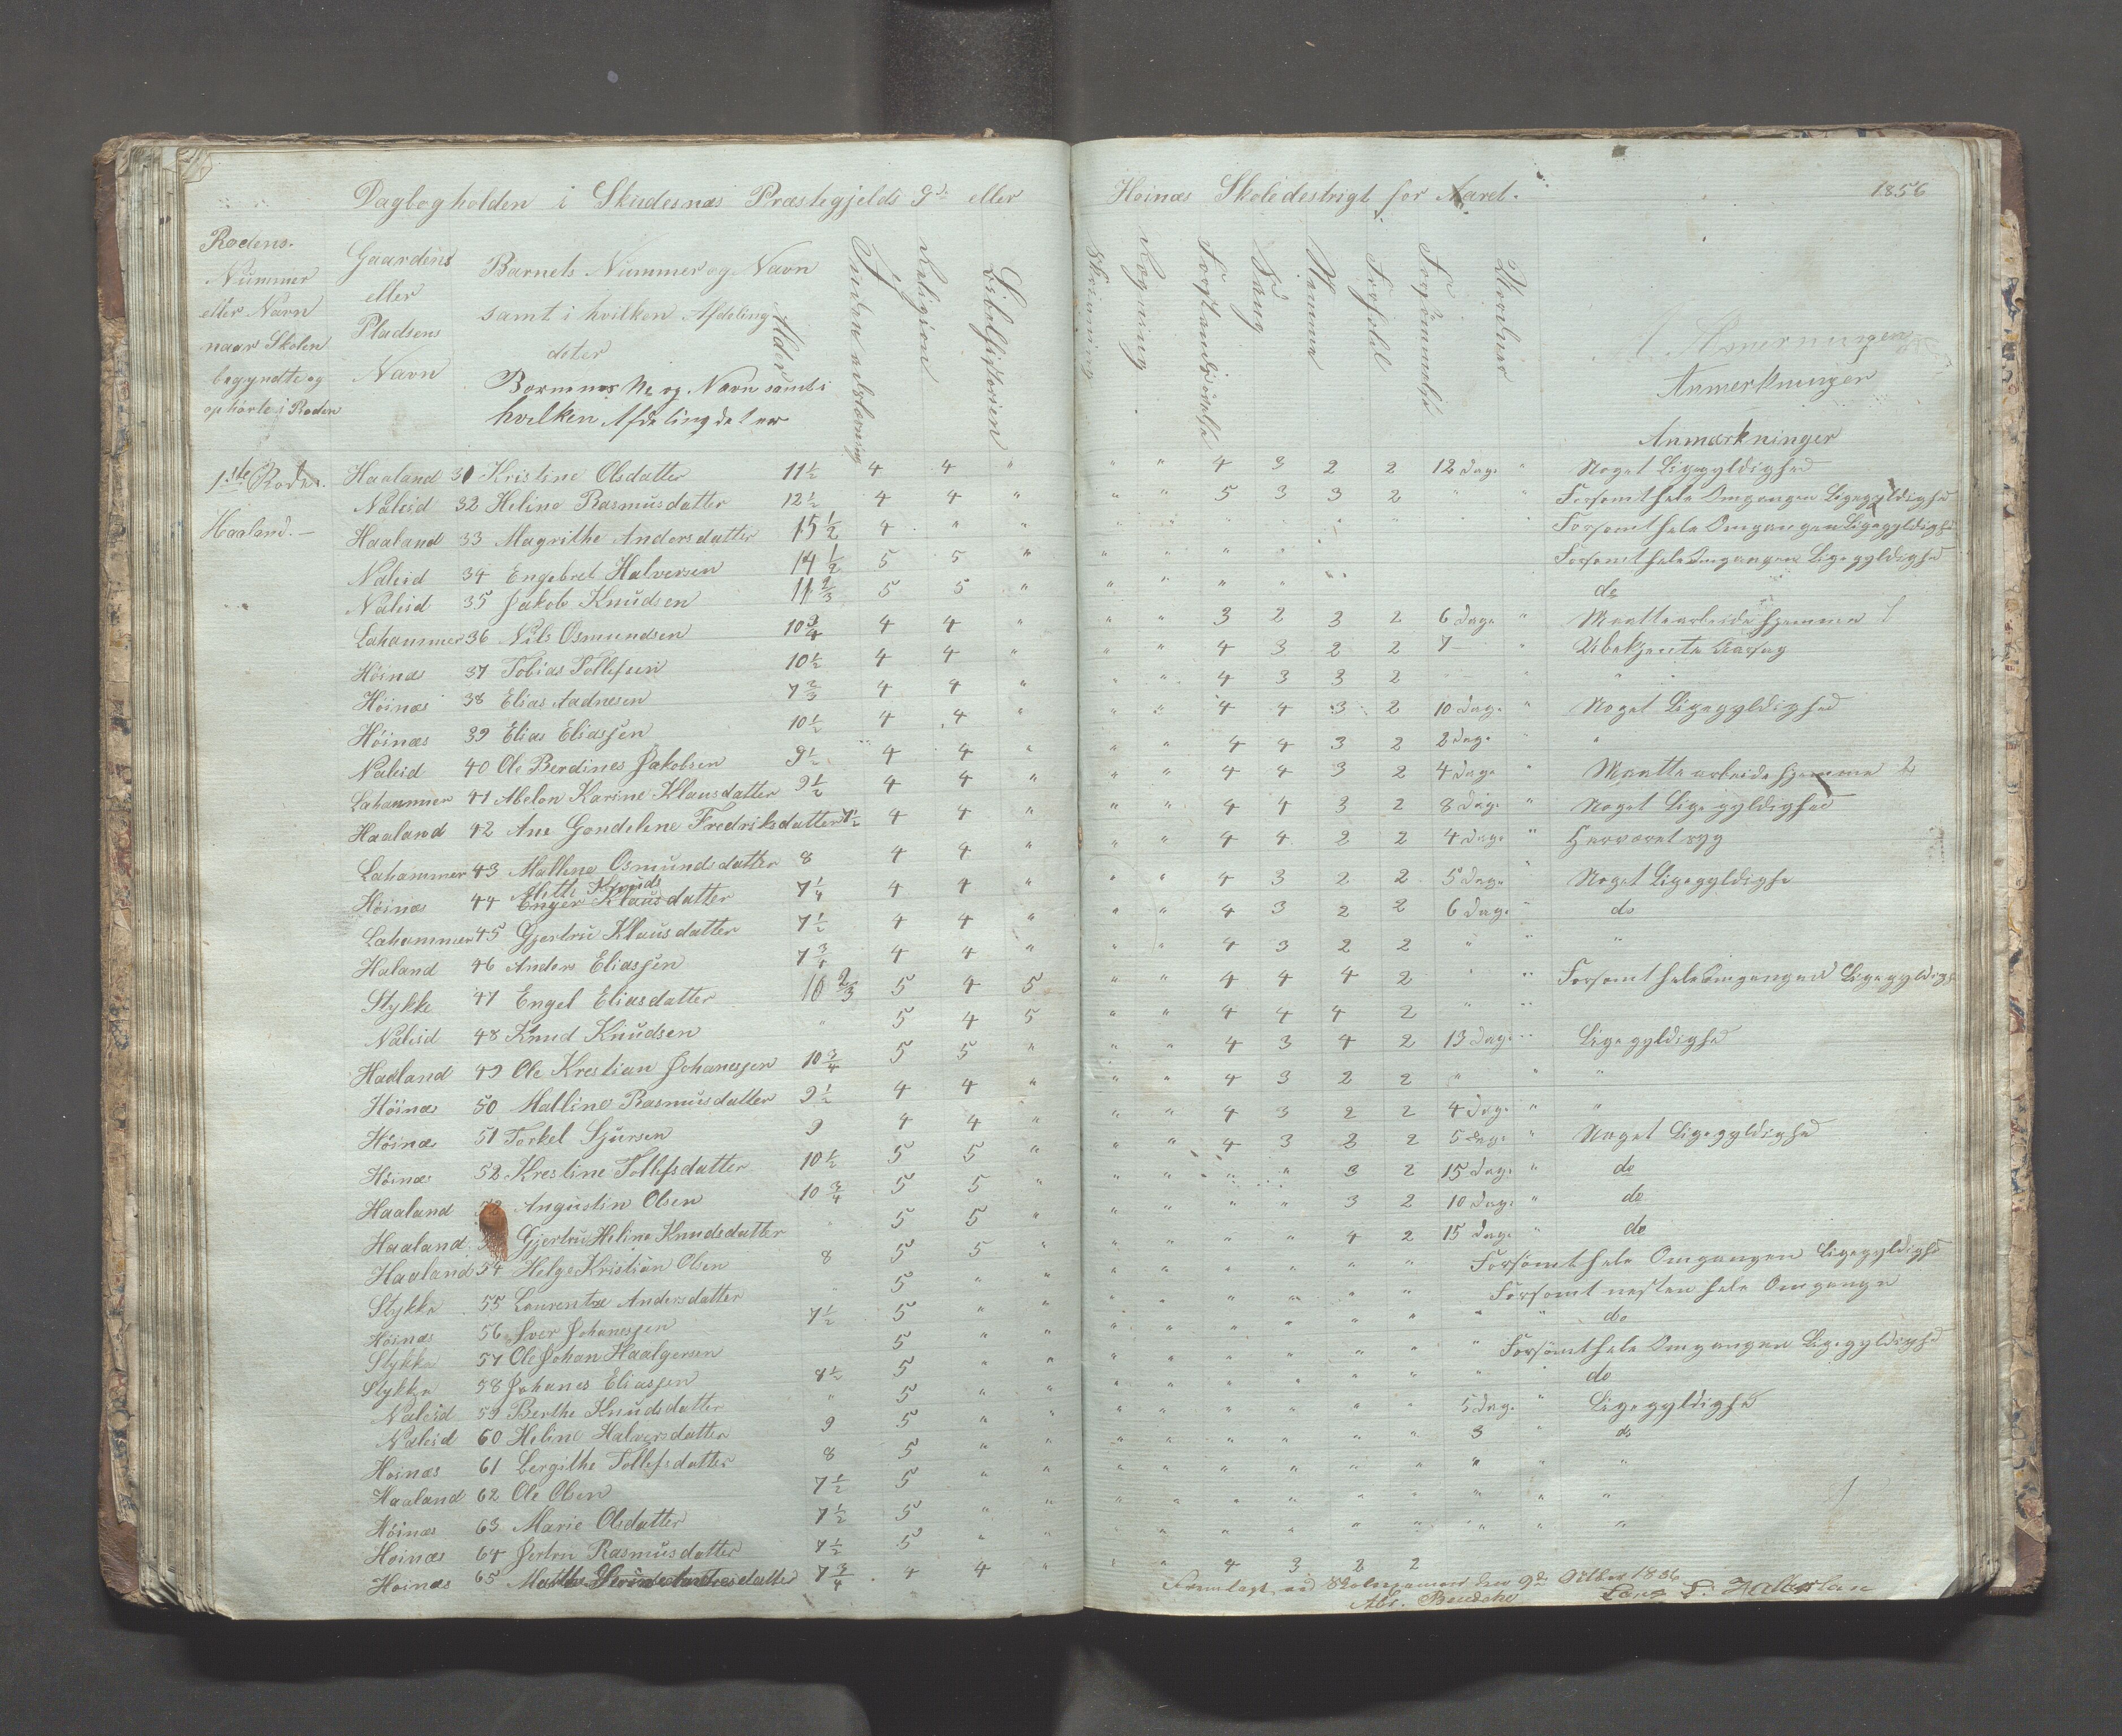 Dagbog holden i Skudesnæs Præstegjelds 9de eller Høinæs Skoledestrigt for Aaret. 1856
Rodens Nummer eller Navn naar Skolen begyndte og ophørte i Roden
Gaardens eller Pladsens Navn
Barnets Nummer og Navn samt i hvilken Afdeling deter
Børnenes No og Navn samt i hvilken Afdeling det er
Alder
Inden adslæsning
Religion
Bibelhistorien
Skrivning
Regning
Forstandsøvelse
Sang
Nemme
Forhold
Forsømmelse
Uordner
Anmerkninger
Anmerkninger
Anmærkninger
1ste Rode. Haaland 31 Kristine Olsdatter 11½ 4 4 " " " 4 3 2 2 12 Dage " Noget Ligegyldighed
Naleid 32 Heline Rasmusdatter 12½ 4 4 " " " 5 3 3 2 " " Forsømt hele Omgangen Ligegyldighed
Haaland.— Haaland 33 Magrithe Andersdatter 15½ 4 " " " " " " " " " " Forsømt hele Omgangen Ligegyldighe
Naleid 34 Engebret Halversen 14½ 5 5 " " " " " " Forsømt hele Omgangen Ligegyldighed
Naleid 35 Jakob Knudsen 11⅔ 5 5 " " " " " " do
Lahammer 36 Nils Osmundsen 10¾ 4 4 " " " 3 2 3 2 6 Dage " Maatte arbeide hjemme
Høinæs 37 Tobias Tollefsen 10½ 4 4 " " " 4 3 2 2 7 — " Ubekjente Aarsag
Høinæs 38 Elias Aadnesen 7⅔ 4 4 " " " 4 3 3 2 " " "
Høinæs 39 Elias Eliassen 10½ 4 4 " " " 4 4 3 2 10 Dage " Noget Ligegyldighed
Naleid 40 Ole Berdines Jakobsen 9½ 4 4 " " " 4 4 3 2 2 Dage " "
Lahammer 41 Abelon Karine Klausdatter 9½ 4 4 " " " 4 4 3 2 4 Dage " Maatte arbeide hjemme
Haaland 42 Ane Gondelene Fredriksdatter 7½ 4 4 " " " 4 4 3 2 8 Dage " Noget Ligegyldighed
Lahammer 43 Mallene Osmundsdatter 8 4 4 " " " 4 4 2 2 4 Dage " Harværet syg
Mitte Knuds
Høinæs 44 Enger Klausdatter 7¼ 4 4 " " " 4 3 2 2 5 Dage " Noget Ligegyldighe
Lahammer 45 Gjertru Klausdatter 7½ 4 4 " " " 4 3 2 2 6 Dage " do
Haland 46 Anders Eliassen 7¾ 4 4 " " " 4 3 2 2 " " "
Stykke 47 Engel Eliasdatter 10⅔ 5 4 5 " " 4 4 4 2 " " Forsømt hele Omgangen Ligegyldigh
Naleid 48 Knud Knudsen " 5 4 5 " " 4 4 4 2 " "
Haaland 49 Ole Krestian Johanessen 10¾ 5 5 " " " 4 3 4 2 13 Dage " Ligegyldighed
Høinæs 50 Malline Rasmusdatter 9½ 4 4 " " " 4 3 2 2 " " "
Høinæs 51 Torkel Sjursen 9 4 4 " " " 4 3 2 2 4 Dage " "
Høinæs 52 Krestine Tollefsdatter 10½ 5 5 " " " 4 3 2 2 5 Dage " Noget Ligegyldighed
Haaland Angustin Olsen 10¾ 5 5 " " " " " 3 2 15 Dage " do
Haaland Gjertru Heline Knudsdatter " 5 5 " " " " " 3 2 10 Dage " do
Haaland 54 Helge Kristian Olsen 8 5 5 " " " " " 4 2 15 Dage " do
Stykke 55 Laurentze Andersdatter " 5 " " " " " " " " Forsømt hele Omgangen Ligegyldighed
Høinæs 56 Iver Johanessen 7½ 5 " " " " " " " " Forsømt nesten hele Omgange
Stykke 57 Ole Johan Haalgersen 5 " " " " " " " " " do
Stykke 58 Johanes Eliassen 8½ 5 " " " " " " " " " Forsømt hele Omgangen Ligegyldighed
Naleid 59 Berthe Knudsdatter " 5 " " " " " " " " " " do
Naleid 60 Heline Halversdatter 9 5 " " " " " " " " 5 Dage " Ligegyldighed
Høinæs 61 Bergithe Tollefsdatter 8 5 " " " " " " " " 3 " do
Haaland 62 Ole Olsen 7½ 5 " " " " " " " " " " "
Høinæs 63 Marie Olsdatter 7½ 5 " " " " " " " " " " "
Høinæs 64 Jertru Rasmusdatter 7½ 5 " " " " " " " " " " "
Høinæs 65 7¾ 4 4 " " " 4 3 2 2
Fremlagt ved Skoleexamen den 9de Octbr 1856